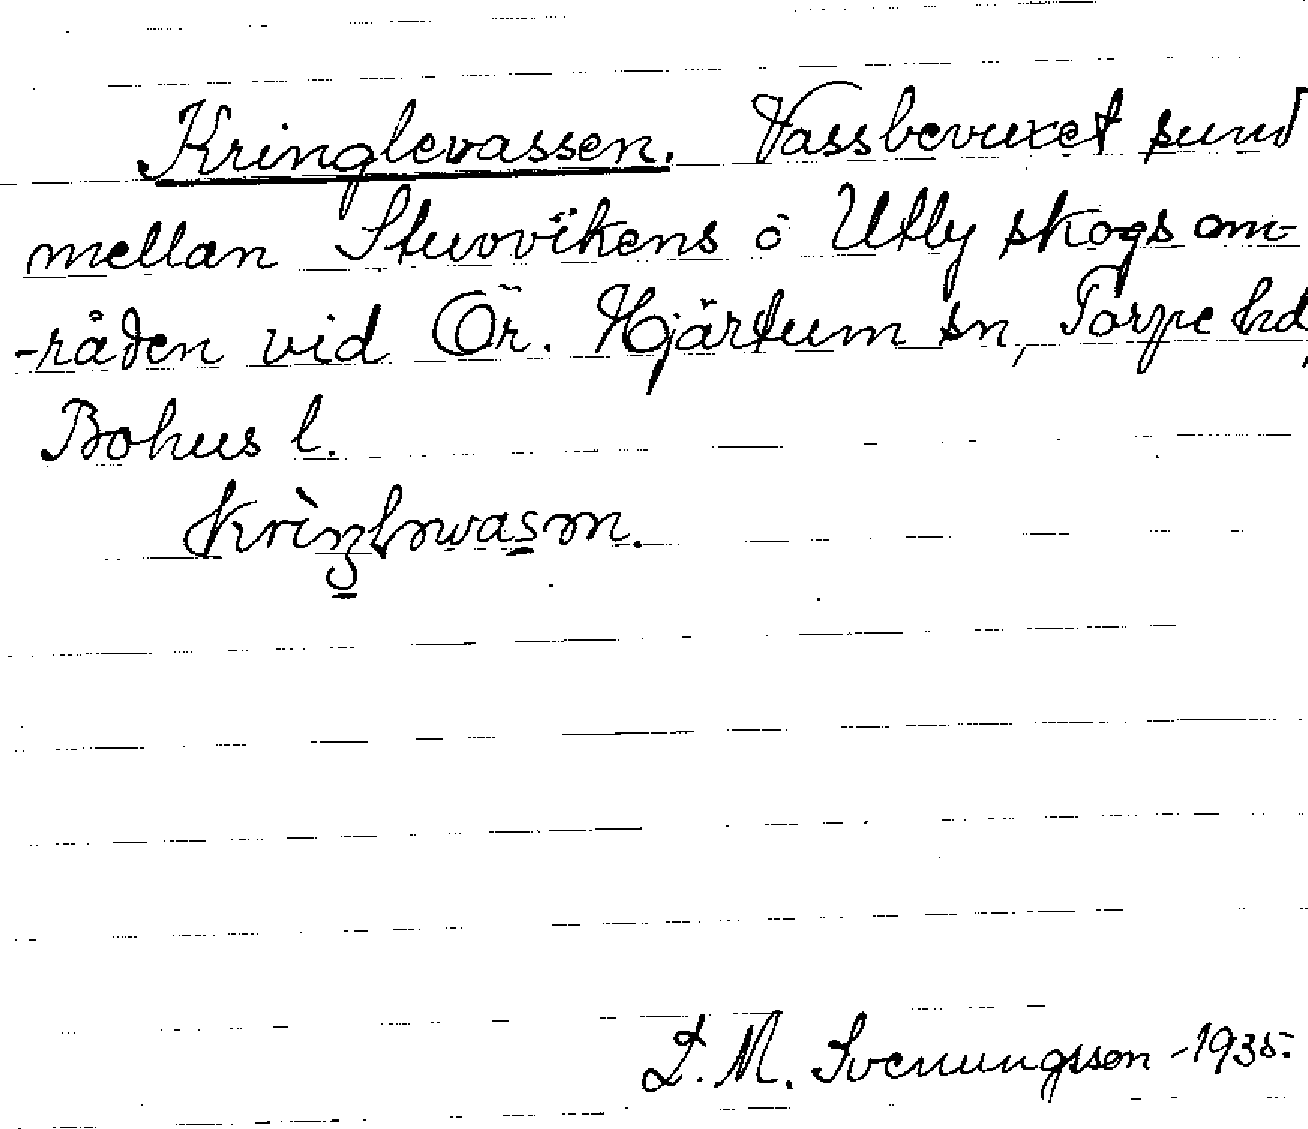 Kringlevassen. Vassbevuxet sund
mellan Stuvvikens o Utby skogsom-
-råden vid Ör. Hjärtum sn, Torpe hd,
Bohus l.
L. M. Svenungsson -1935.